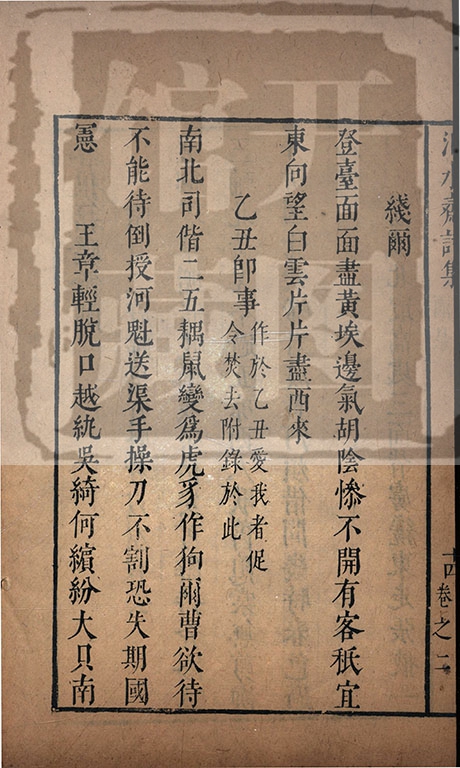 綫爾
登臺面面盡黃埃邊氣胡陰慘不開有客秖宜
東向望白雲片片盡西來
乙丑卽事
作於乙丑愛我者促
令焚去附錄於此
南北司偕二五耦鼠變爲虎豸作狗爾曹欲待
不能待倒授河魁送渠手操刀不割恐失期國
王章輕脫口越紈吳綺何繽紛大貝南
卷之二